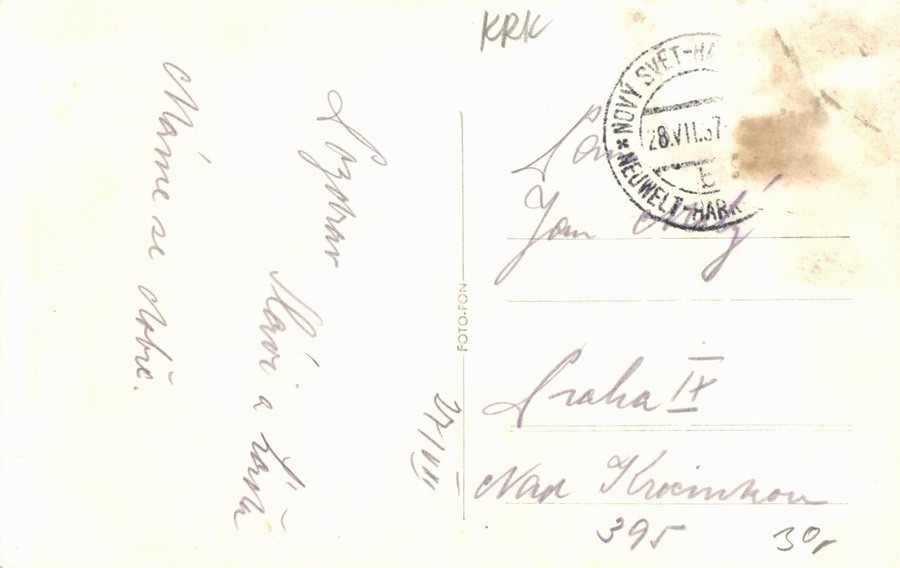 KRK
Máme se dobře.
Pozdrav
a
27/VII
FOTO-FON
* NOVÝ SVĚT-HA
28.VII.37
* NEUWELT-HARR
Pan
Jan Malý
Praha IX
Nad Krocínkou
395
30,